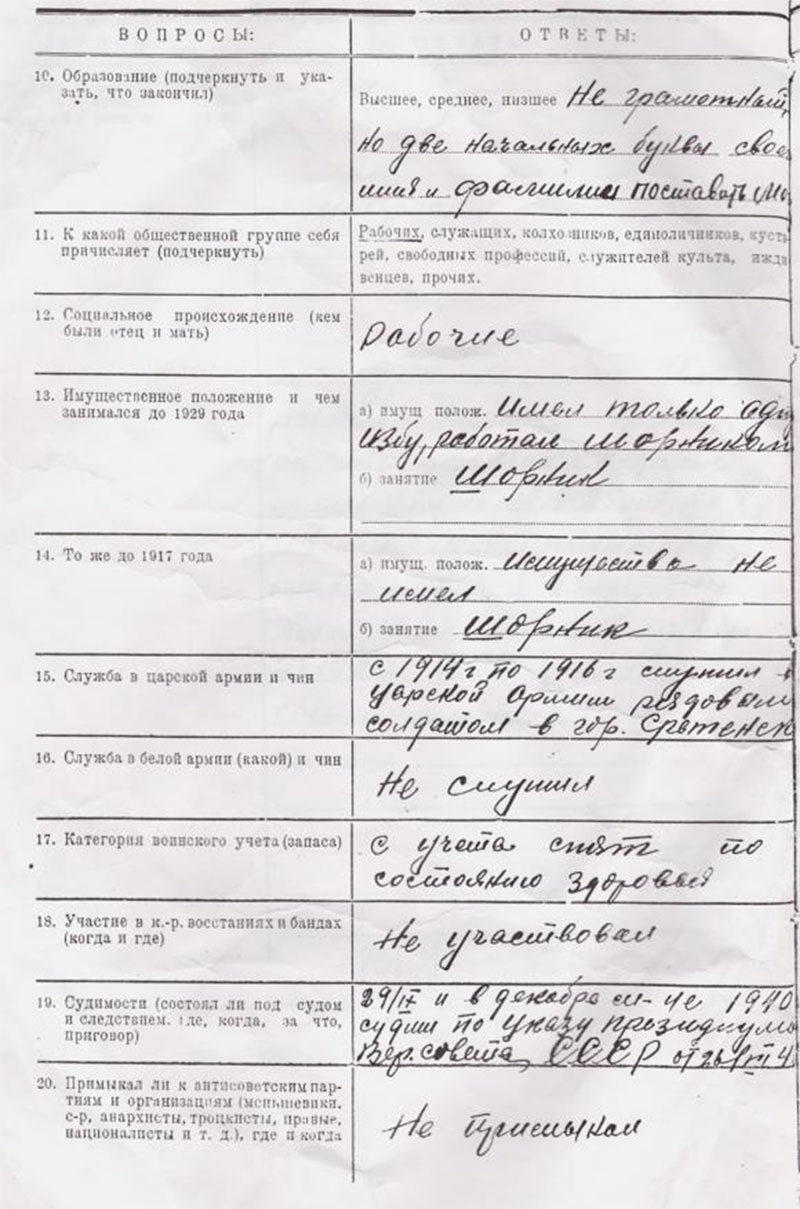 ВОПРОСЫ:
ОТВЕТЫ:
10. Образование (подчеркнуть и ука-
зать, что закончил)
Высшее, среднее, низшее Не грамотный,
но две начальных буквы свое
имя и фамилии поставить
11. К какой общественной группе себя
причисляет (подчеркнуть)
Рабочих, служащих, колхозников, единоличников, куста
рей, свободных профессий, служителей культа, ижди
венцев, прочих.
12. Социальное происхождение (кем
были отец и мать)
Рабочие
13. Имущественное положение и чем
занимался до 1929 года
а) имущ полож. Имел только одну
избу, работал шорником
б) занятие Шорник
14. То же до 1917 года
а) имущ. полож. Имущества не
имел
б) занятие Шорник
15. Служба в царской армии и чин
с 1914 г по 1916 г служил в
царской армии рядовым
солдатом в гор. Сретенск
16. Служба в белой армии (какой) и чин
Не служил
17. Категория воинского учета (запаса)
С учета снят по
состоянию здоровья
18. Участие в к.-р. восстаниях и бандах
(когда и где)
Не участвовал
19. Судимости (состоял ли под судом
и следствием. где, когда, за что,
приговор)
29/IX и в декабре 1940
судим по указу президиума
Вер. совета СССР от 26/
20. Примыкал ли к антисоветским пар-
тиям и организациям (меньшевики,
с-р, анархисты, троцкисты, правые,
националисты и т. д.), где и когда
Не примыкал